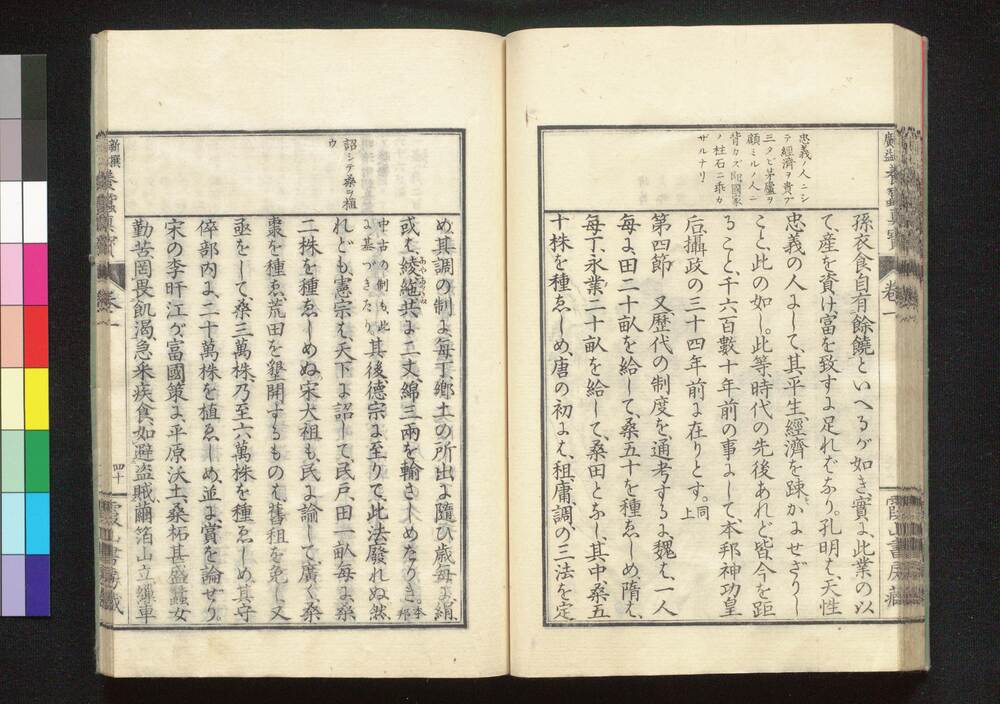 忠義ノ人ニシ
テ經濟ヲ貴ブ
三タビ茅廬ヲ
顧ミルノ人ニ
背カズ即國家
ノ柱石ニ乖カ
ザルナリ
孫衣食自有餘饒といへるが如き、實に、此業の以
て、産を資け、富を致すに足ればなり。孔明は、天性
忠義の人にして、其平生、經濟を踈かにせざりし
こと、此の如し。此等、時代の先後あれど、皆、今を距
ること、千六百數十年前の事にして、本邦、神功皇
后、攝政の三十四年前に在りとす。同上
第四節　又、歴代の制度を通考するに、魏は、一人
毎に、田二十畝を給して、桑五十を種ゑしめ、隋は、
毎丁、永業二十畝を給して、桑田となし、其中、桑五
十株を種ゑしめ、唐の初には、租、庸、調、の三法を定
卷一
霞山書房藏
詔シテ桑ヲ植
ウ
め、其調の制は、毎丁、鄕土の所出に隨ひ、歳毎に、絹、
或は、綾絁共に二丈、綿三兩を輸さしめたりき。本邦
中古の制も、此に基づきたり、其後、德宗に至りて、此法廢れぬ、然
れども、憲宗は、天下に詔して、民戸、田一畝毎に、桑
二株を種ゑしめぬ、宋太祖も、民に諭して、廣く、桑
棗を種ゑ、荒田を墾開するものは、舊租を免し、又
亟をして、桑三萬株、乃至六萬株を種ゑしめ、其守
倅部内に、二十萬株を植ゑしめ、並に、賞を論せり。
宋の李旰江が、富國策に、平原沃土、桑柘甚盛、蠶女
勤苦、罔畏飢渴、急釆疾食、如避盜賊、繭箔山立、繅車
新撰
卷一
四十
霞山書房藏